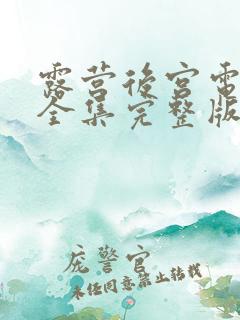 露营後宫电
全集完整版
庞警官
未经同意禁止转载